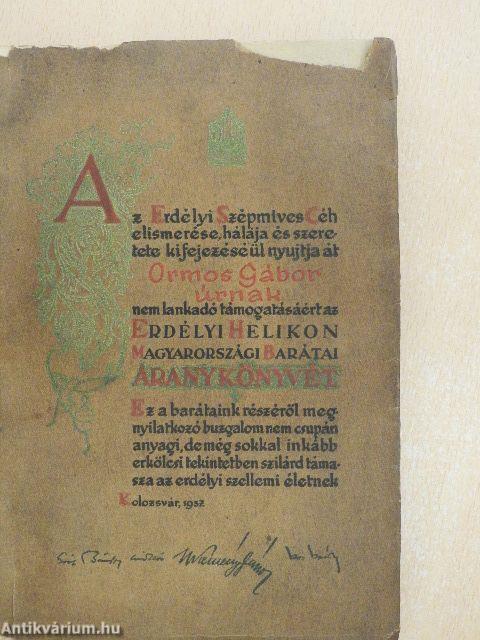 Az Erdélyi Szépmives Céh
elismerése, hálája és szere-
tete kifejezéséül nyujtja át
Ormos Gábor
úrnak
nem lankadó támogatásáért az
ERDÉLYI HELIKON
MAGYARORSZÁGI BARÁTAI
ARANYKÖNYVÉT
Ez a barátaink részéről meg-
nyilatkozó buzgalom nem csupán
anyagi, de még sokkal inkább
erkölcsi tekintetben szilárd táma-
sza az erdélyi szellemi életnek
Kolozsvár, 1937
Antikvárium.hu